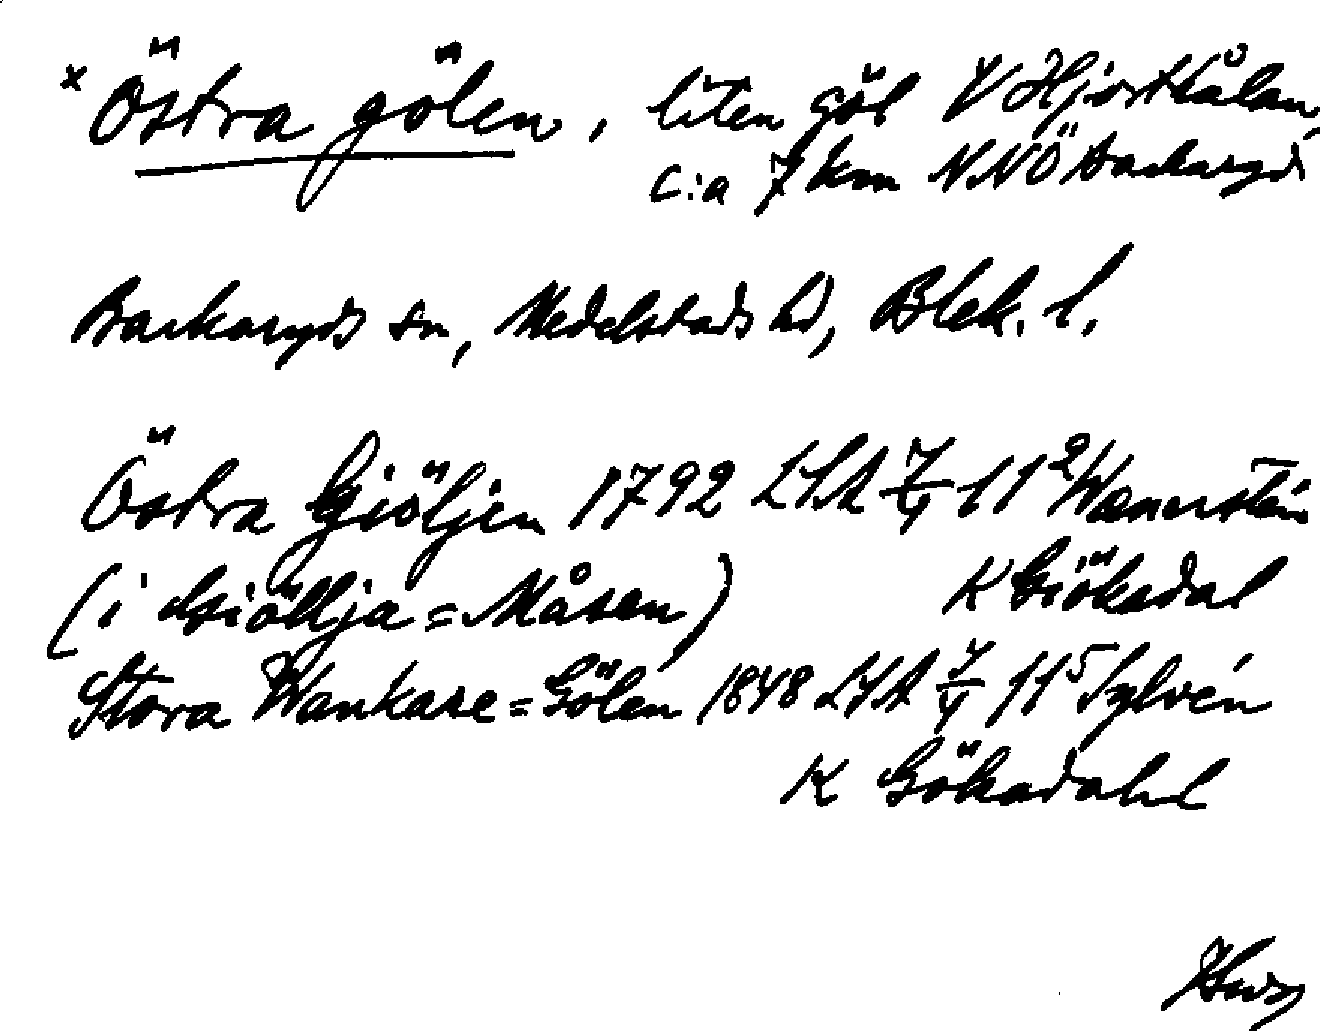 × Östra gölen, liten göl V Hjorthålan,
c:a 7 km NNÖ Backaryd
Backaryds sn, Medelstads hd, Blek. l.
Östra Gjöljen 1792 LSA 7/9 11² Wanerstén
(i Asiöllja=Måsen) K Giökadal
Stora Wankase=Gölen 1848 LSA 7/9 11⁵ Sylvén
K Gökadahl